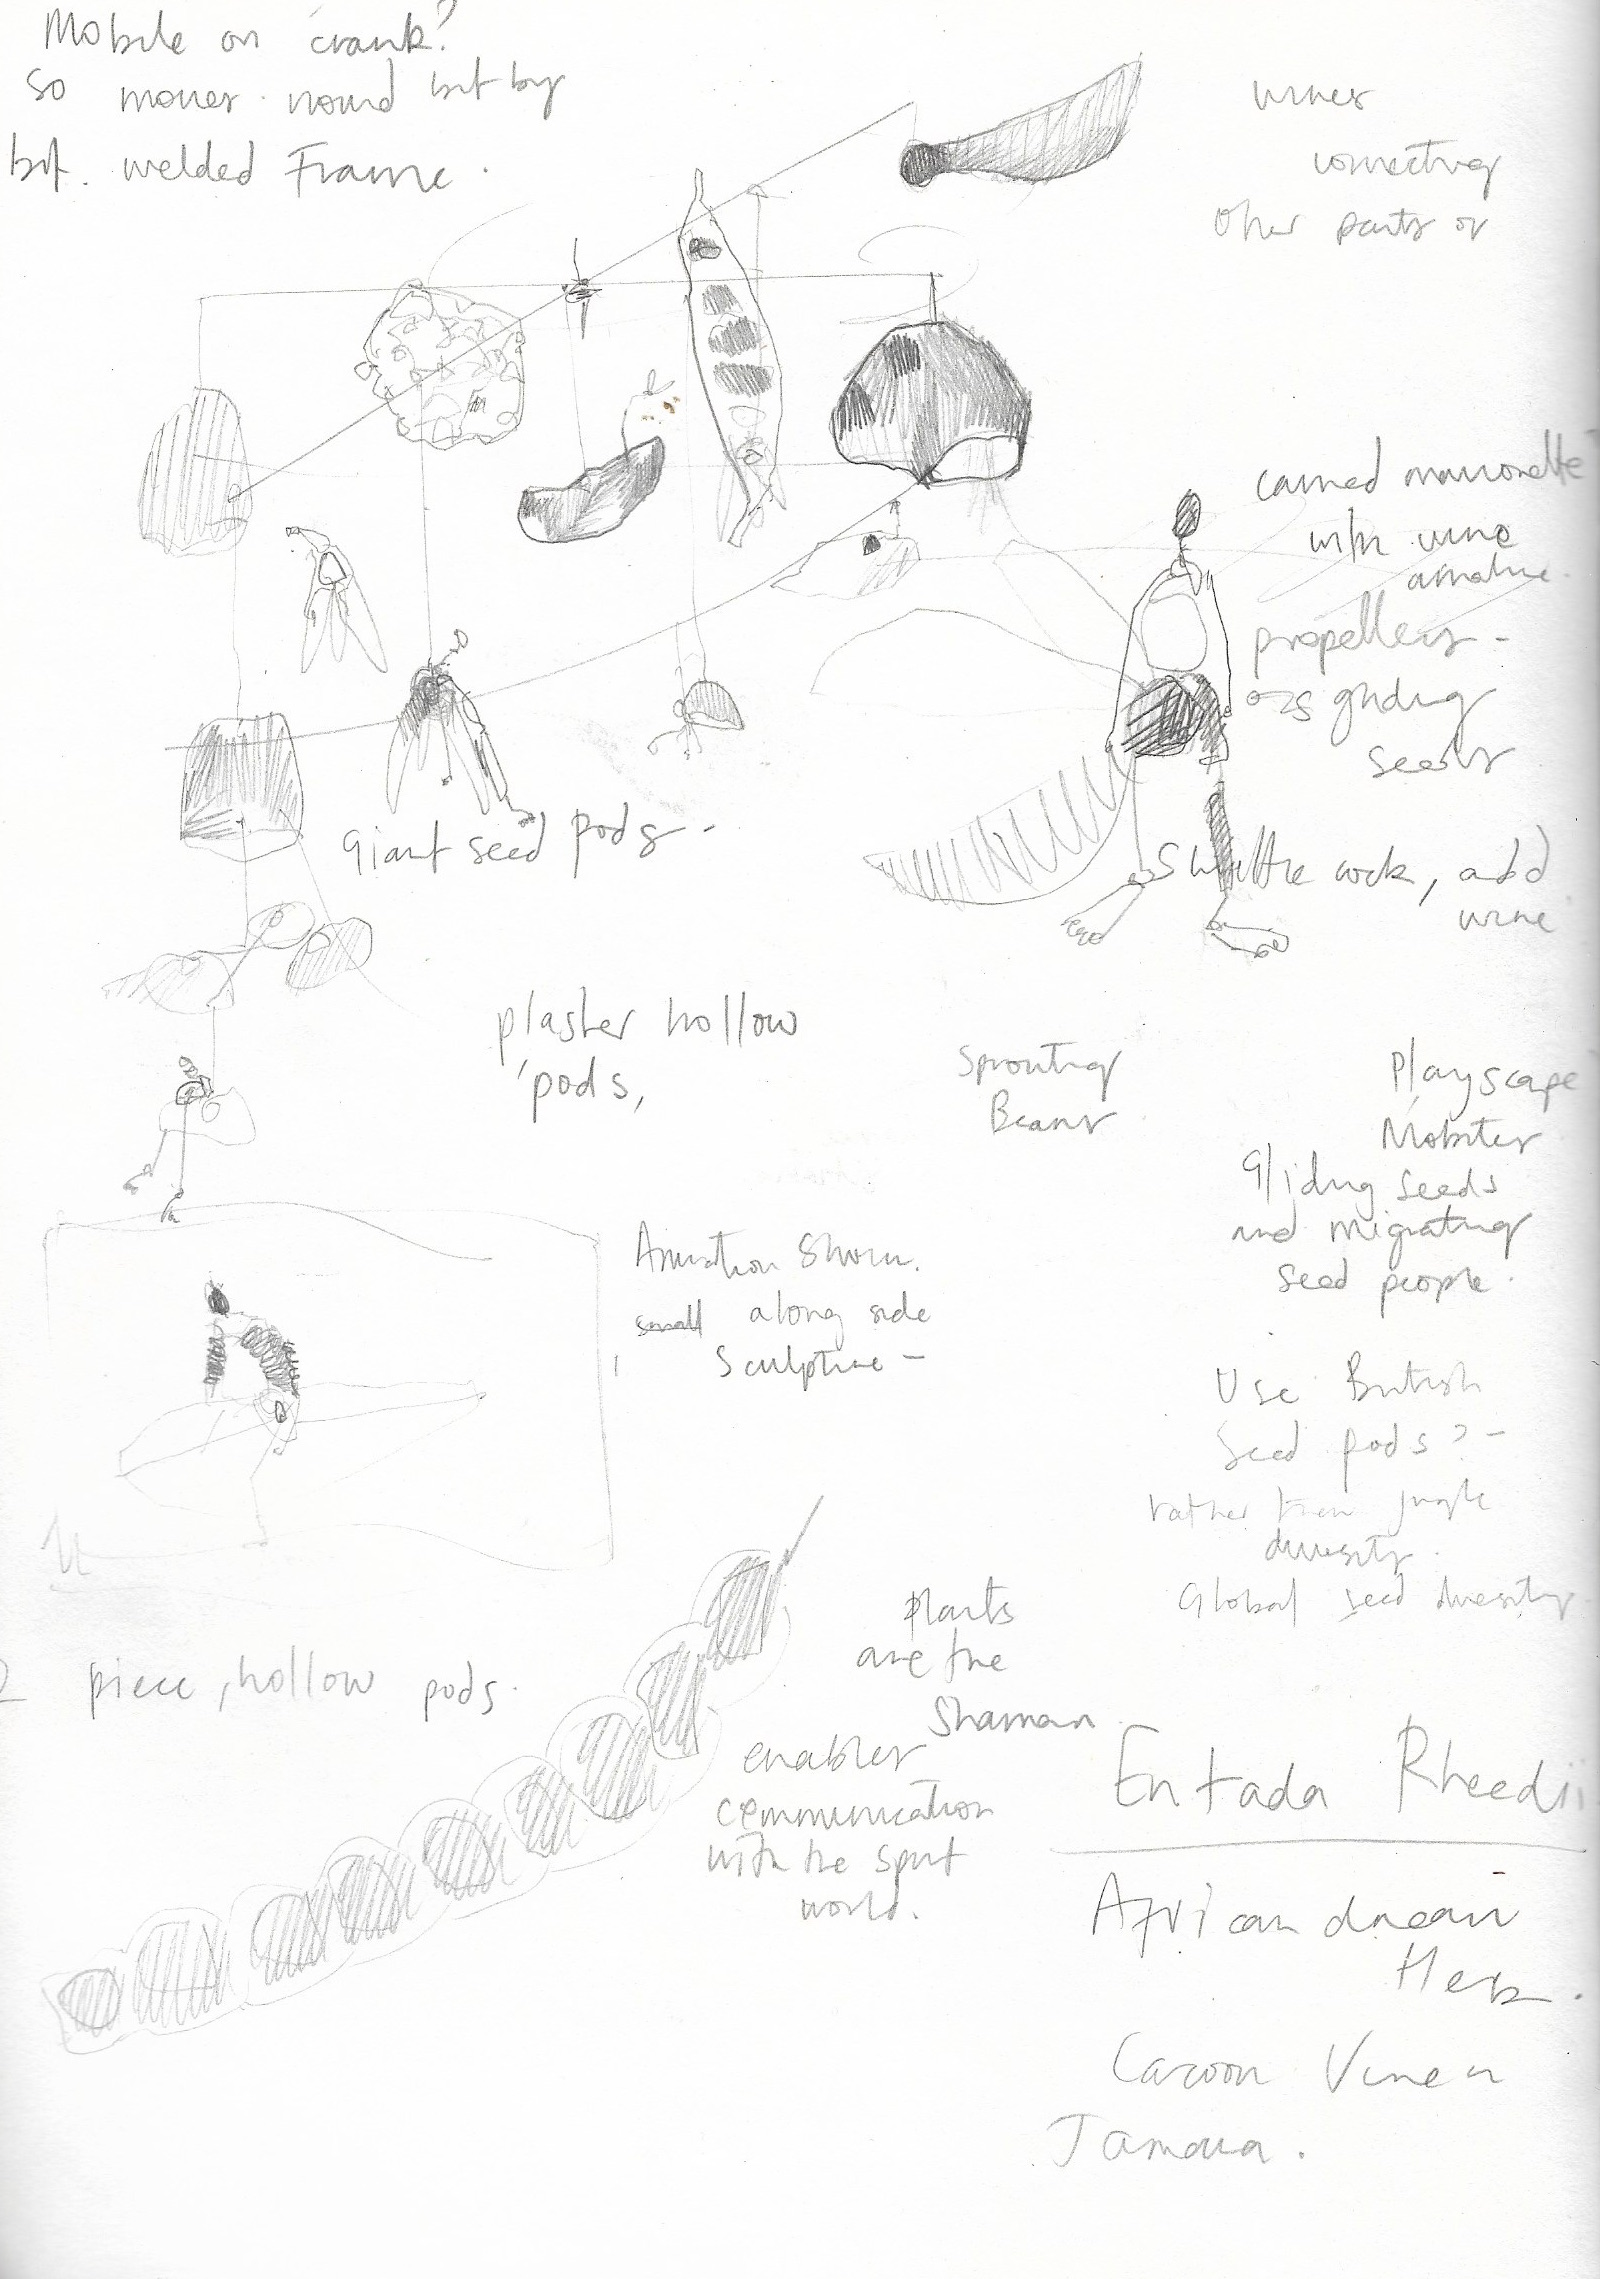 Mobile on crank?
So moves round bit by
bit. welded Frame.
wires
connecting
other parts of
carved marionette
with wire
armature.
propellers -
as gliding
seeds
Giant seed pods -
Shuttle cock, add
wire
plaster hollow
'pods,
Sprouting
Beans
Playscape
Mobiles
Gliding seeds
and migrating
seed people.
Animation Shown.
small along side
Sculpture -
Use British
Seed pods? -
rather than jungle
diversity.
Global seed diversity
2 piece, hollow pods.
Plants
are the
Shaman.
enables
communication
with the spirit
world.
Entada Rheedii
African dream
Herb.
Cacoon Vine in
Jamaica.